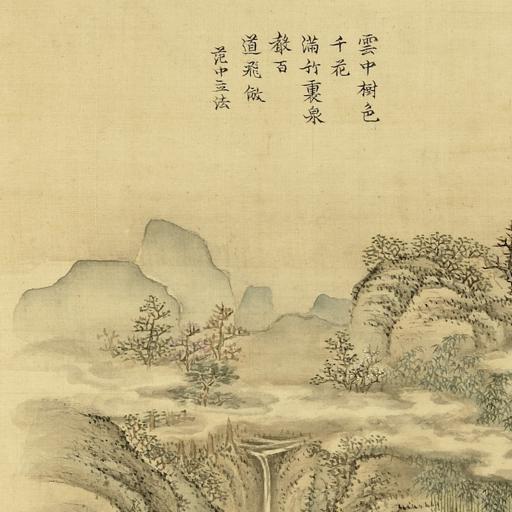 雲中樹色
千花
滿竹裏泉
聲百
道飛倣
范中立法